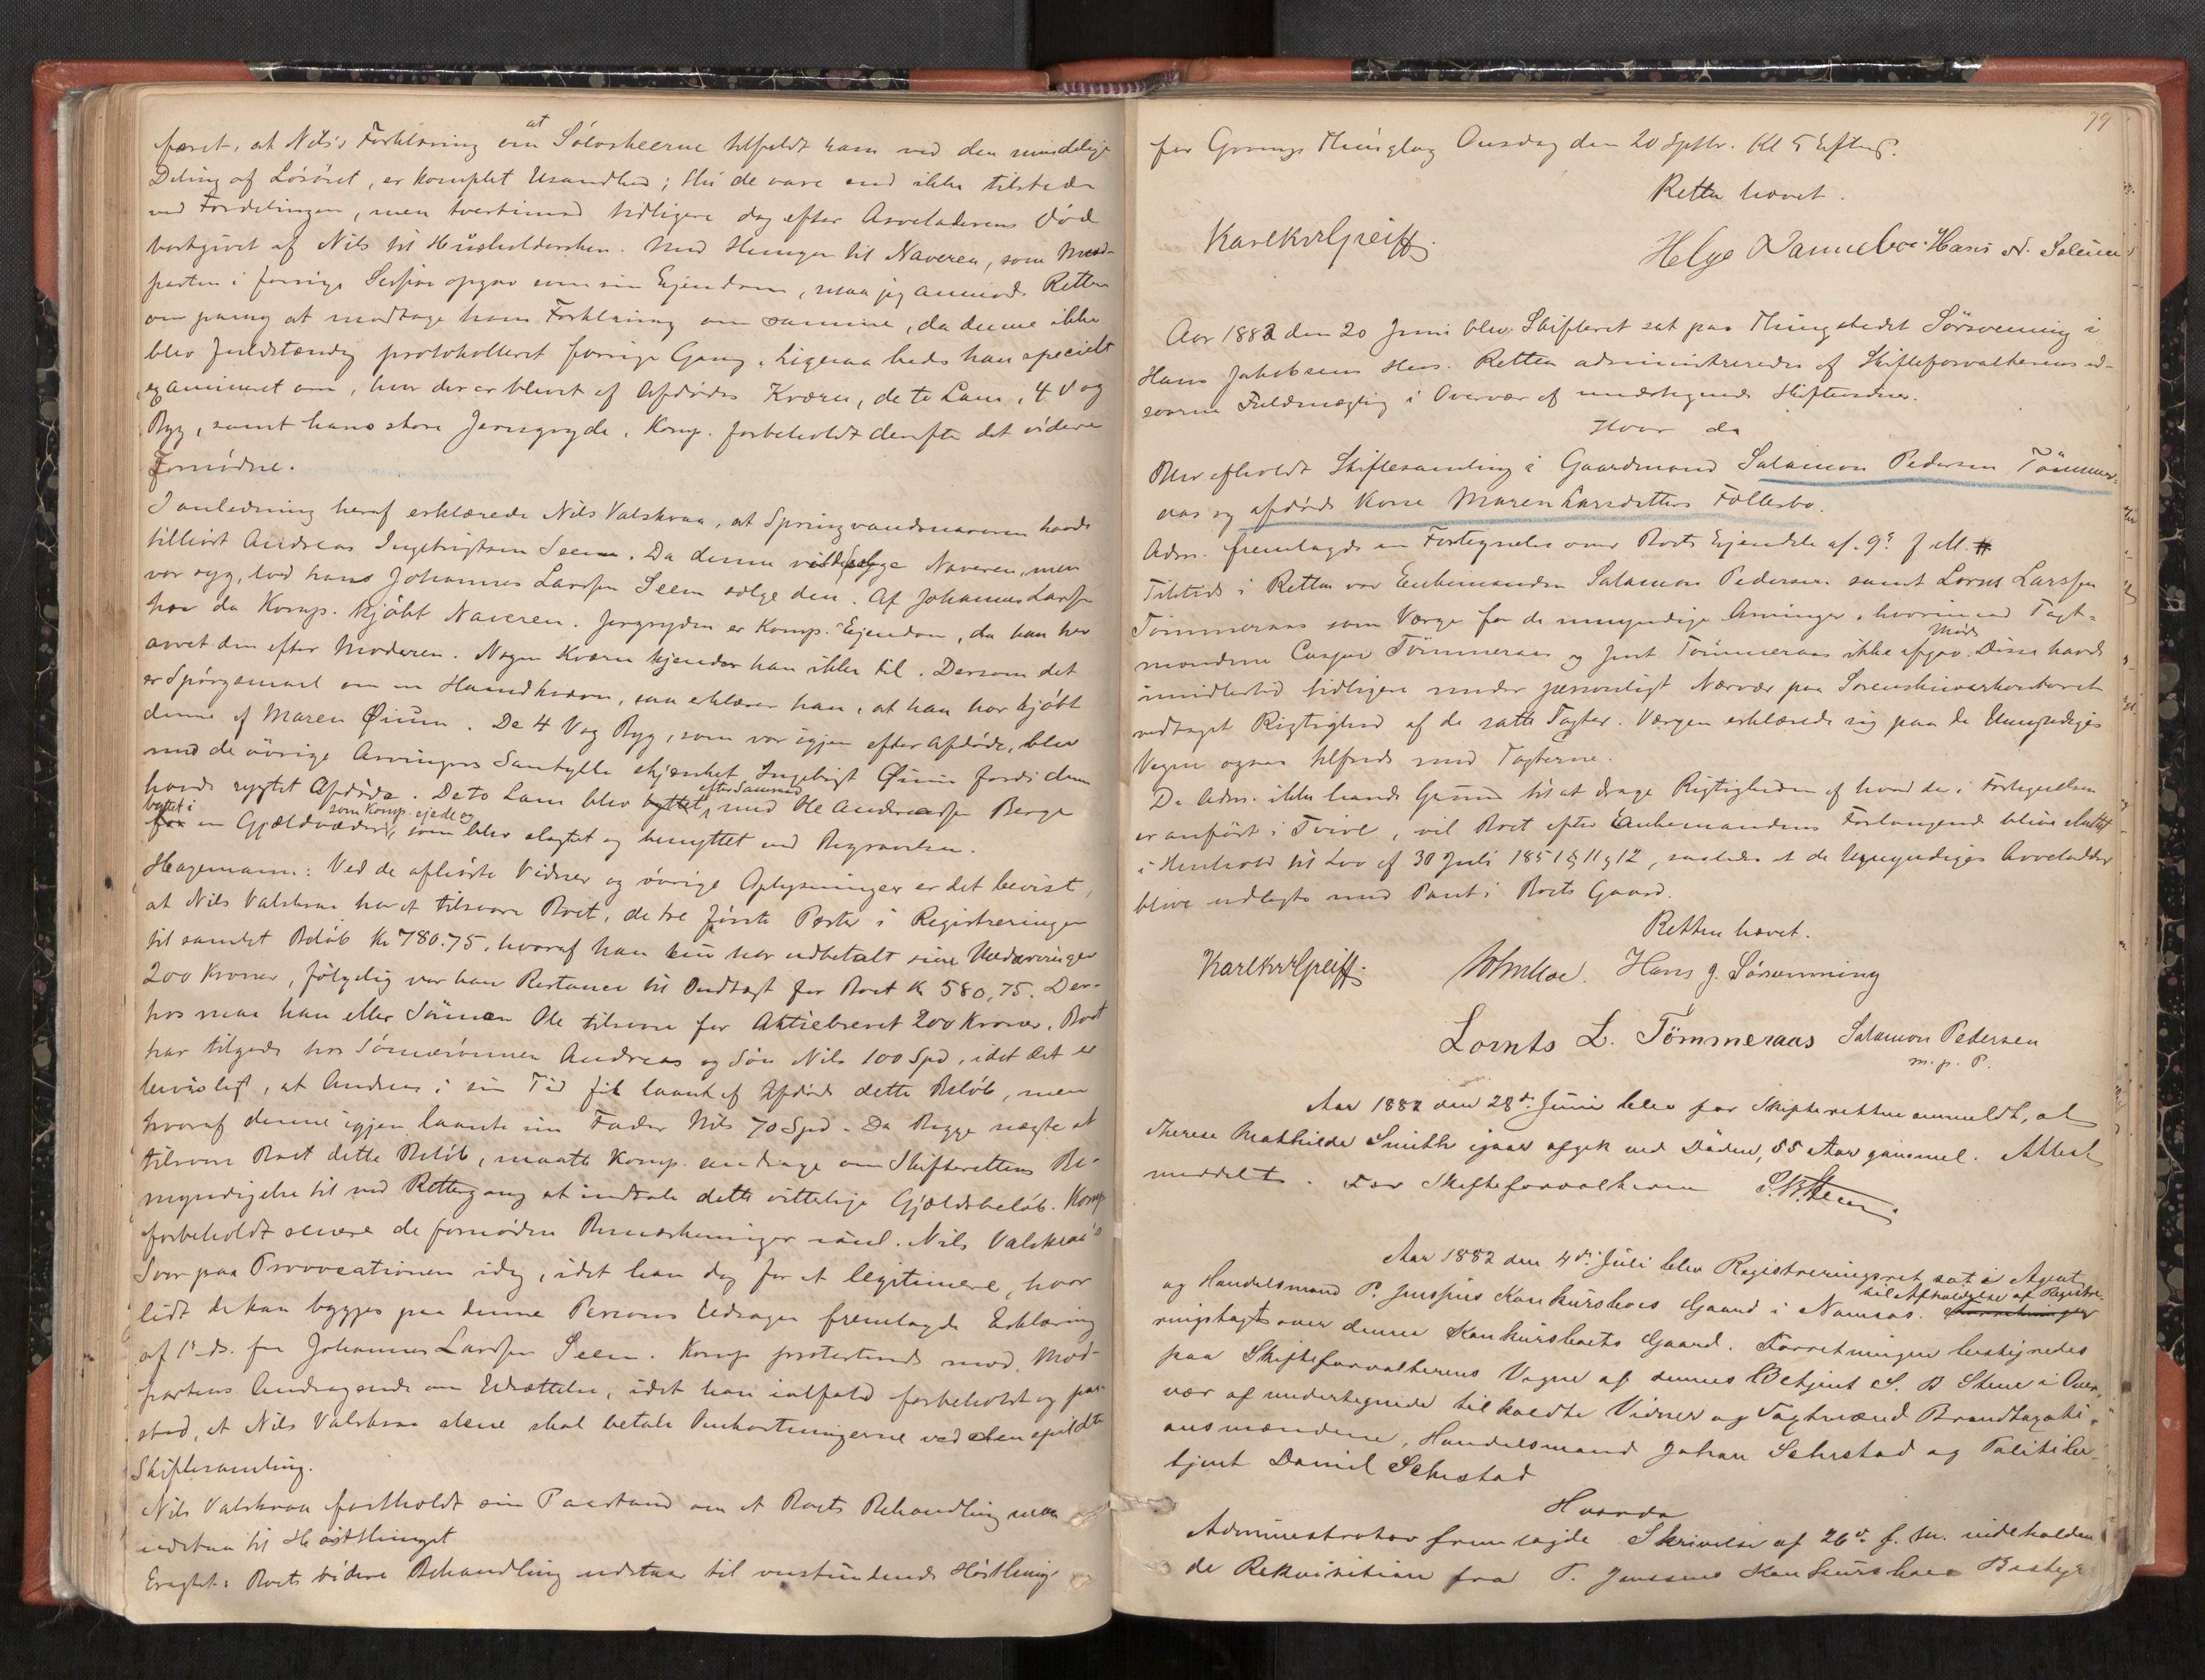 færet, at Nils's Forklaring om at Sølvskeerne tilfaldt ham ved den mindelige
Deling af Løsøret, er komplet Usandhed; thi de vare end ikke tilstede
ved Fordelingen, men tvertimod tidligere dog efter Arveladerens Død
bortgivet af Nils til Husholdersken. Med Hensyn til Naveren, som Mod-
parten i forrige Session opgav som sin Ejendom, maa jeg anmode Retten
om paany at modtage hans Forklaring om samme, da denne ikke
blev fuldstændig protokolleret forrige Gang. Ligesaa bedes han specielt
examineret om, hvor der er blevet af Afdødes Kværn, de to Lam, 4 Vog
Byg, samt hans store Jerngryde. Komp. forbeholdt derefter det videre
Fornødne.
I anledning heraf erklærede Nils Valskraa, at Springvandsnaveren havde
tilhørt Andreas Ingebrigtsen Seem. Da denne vilde sælge Naveren, men
var syg, lod hans Johannes Larssen Seem sælge den. Af Johannes Larssen
har da Komp. kjøbt Naveren. Jerngryden er Komp. Ejendom, da han har
arvet den efter Moderen. Nogen Kværn kjender han ikke til. Dersom det
er Spørgsmaal om en Haandkværn, saa erklærer han, at han har kjøbt
denne af Maren Øium. De 4 Vog Byg, som var igjen efter Afdøde, blev
med de øvrige Arvingers Samtykke skjænket Ingebrigt Øium fordi denne
havde røgtet Afdøde. De to Lam blev byttet efter Samraad med Ole Andreassen Berge
byttet i for en Gjældvæder, som Komp. ejede og som blev slagtet og benyttet ved Begravelsen.
Hagemann: Ved de afhørte Vidner og øvrige Oplysninger er det bevist,
at Nils Valskraa har at tilsvare Boet, de tre første Poster i Registreringen
til samlet Beløb Kr 780.75, hvoraf han kun har udbetalt sine Medarvinger
200 Kroner, følgelig var han Restance til Indtægt for Boet Kr 580,75. Der-
hos maa han eller Sønnen Ole tilsvare for Aktiebrevet 200 Kroner. Boet
har tilgode hos Sønnesønnen Andreas og Søn Nils 100 Spd, idet det er
bevisligt, at Andreas i sin Tid fik laant af Afdøde dette Beløb, men
hvoraf denne igjen laante sin Fader Nils 70 Spd. Da Begge nægte at
tilsvare Boet dette Beløb, maatte Komp. andrage om Skifterettens Be-
myndigelse til ved Rettergang at indtale dette vitterlige Gjældsbeløb. Komp
forbeholdt senere de fornødne Bemærkninger imod. Nils Valskraa's
Svar paa Provocationen idag, idet han dog for at legitimere, hvor
lidt der kan bygges paa denne Persons Udsagn fremlagde Erklæring
af 1ste ds. fra Johannes Larssen Seem. Komp protesterede mod Mod-
partens Andragende om Udsættelse, idet han ialfald forbeholdt og paa-
stod, at Nils Valskraa alene skal betale Omkostningerne ved den spildte
Skiftesamling.
Nils Valskraa fastholdt sin Paastand om at Boets Behandling maa
udstaa til Høstthinget
Eragtet: Boets videre Behandling udstaar til indestundende Høstthing
79
for Grongs Thinglag Onsdag den 20 Septbr. Kl 5 Efterm.
Retten hævet.
Karl Kr. Greiff. Helge Hans N. Solem
Aar 1882 den 20 Juni blev Skifteret sat paa Thingstedet Sørvenning i
Hans Jakobsens Hus. Retten administreredes af Skifteforvalterens ed-
svorne Fuldmægtig i Overvær af undertegnede Skiftevidner.
Hvor da
Blev afholdt Skiftesamling i Gaardmand Salamon Pedersen Tømmer-
aas og afdøde Kone Maren Larsdatters Fællesbo.
Adm. fremlagde en Fortegnelse over Boets Ejendele af 9de f. M.
Tilstede i Retten var Enkemanden Salamon Pedersen samt Lornts Larssen
Tømmeraas som Værge for de umyndige Arvinger, hvorimod Taxt-
mændene Caspar Tømmeraas og Jent Tømmeraas ikke afgav Møde. Disse havde
imidlertid tidligere under personligt Nærvær paa Sorenskriverkontoret
vedtaget Rigtighed af de satte Taxter. Værgen erklærede sig paa de Umyndiges
Vegne ogsaa tilfreds med Taxterne.
Da Adm. ikke havde Grund til at drage Rigtigheden af hvad der i Fortegnelsen
er anført i Tvivl, vil Boet efter Enkemandens Forlangende blive sluttet
i Henhold til Lov af 30 Juli 1851 § 11 og 12, saaledes at de Umyndiges Arvelodder
blive udlagte med Pant i Boets Gaard.
Retten hævet.
Karl Kr. Greiff. Hans J. Sørvenning
Lornts L. Tømmeraas Salamon Pedersen
m. p. P.
Aar 1882 den 28de Juni blev for Skifteretten anmeldt, at
Therese Mathilde Smith igaar afgik ved Døden, 55 Aar gammel. Attest
meddelt. For Skifteforvalteren S. B. Steen
Aar 1882 den 4de Juli blev Registreringsret sat i Agent
og Handelsmand P. Jenssens Konkursboes Gaard i Namsos. til Afholdelse af Registre-
ringstagt over denne Konkursboets Gaard. Forretningen bestyredes
paa Skifteforvalterens Vegne af dennes Betjent S. B Steen i Over-
vær af undertegnede tilkaldte Vidner og Taxtmænd Brandtaxati-
onsmændene, Handelsmand Johan Sehestad og Politibe-
tjent Daniel Sehestad
Hvorda
Administrator fremlagde Skrivelse af 26de f. M. indeholden
de Rekvisition fra P. Jenssens Konkursboes Besty